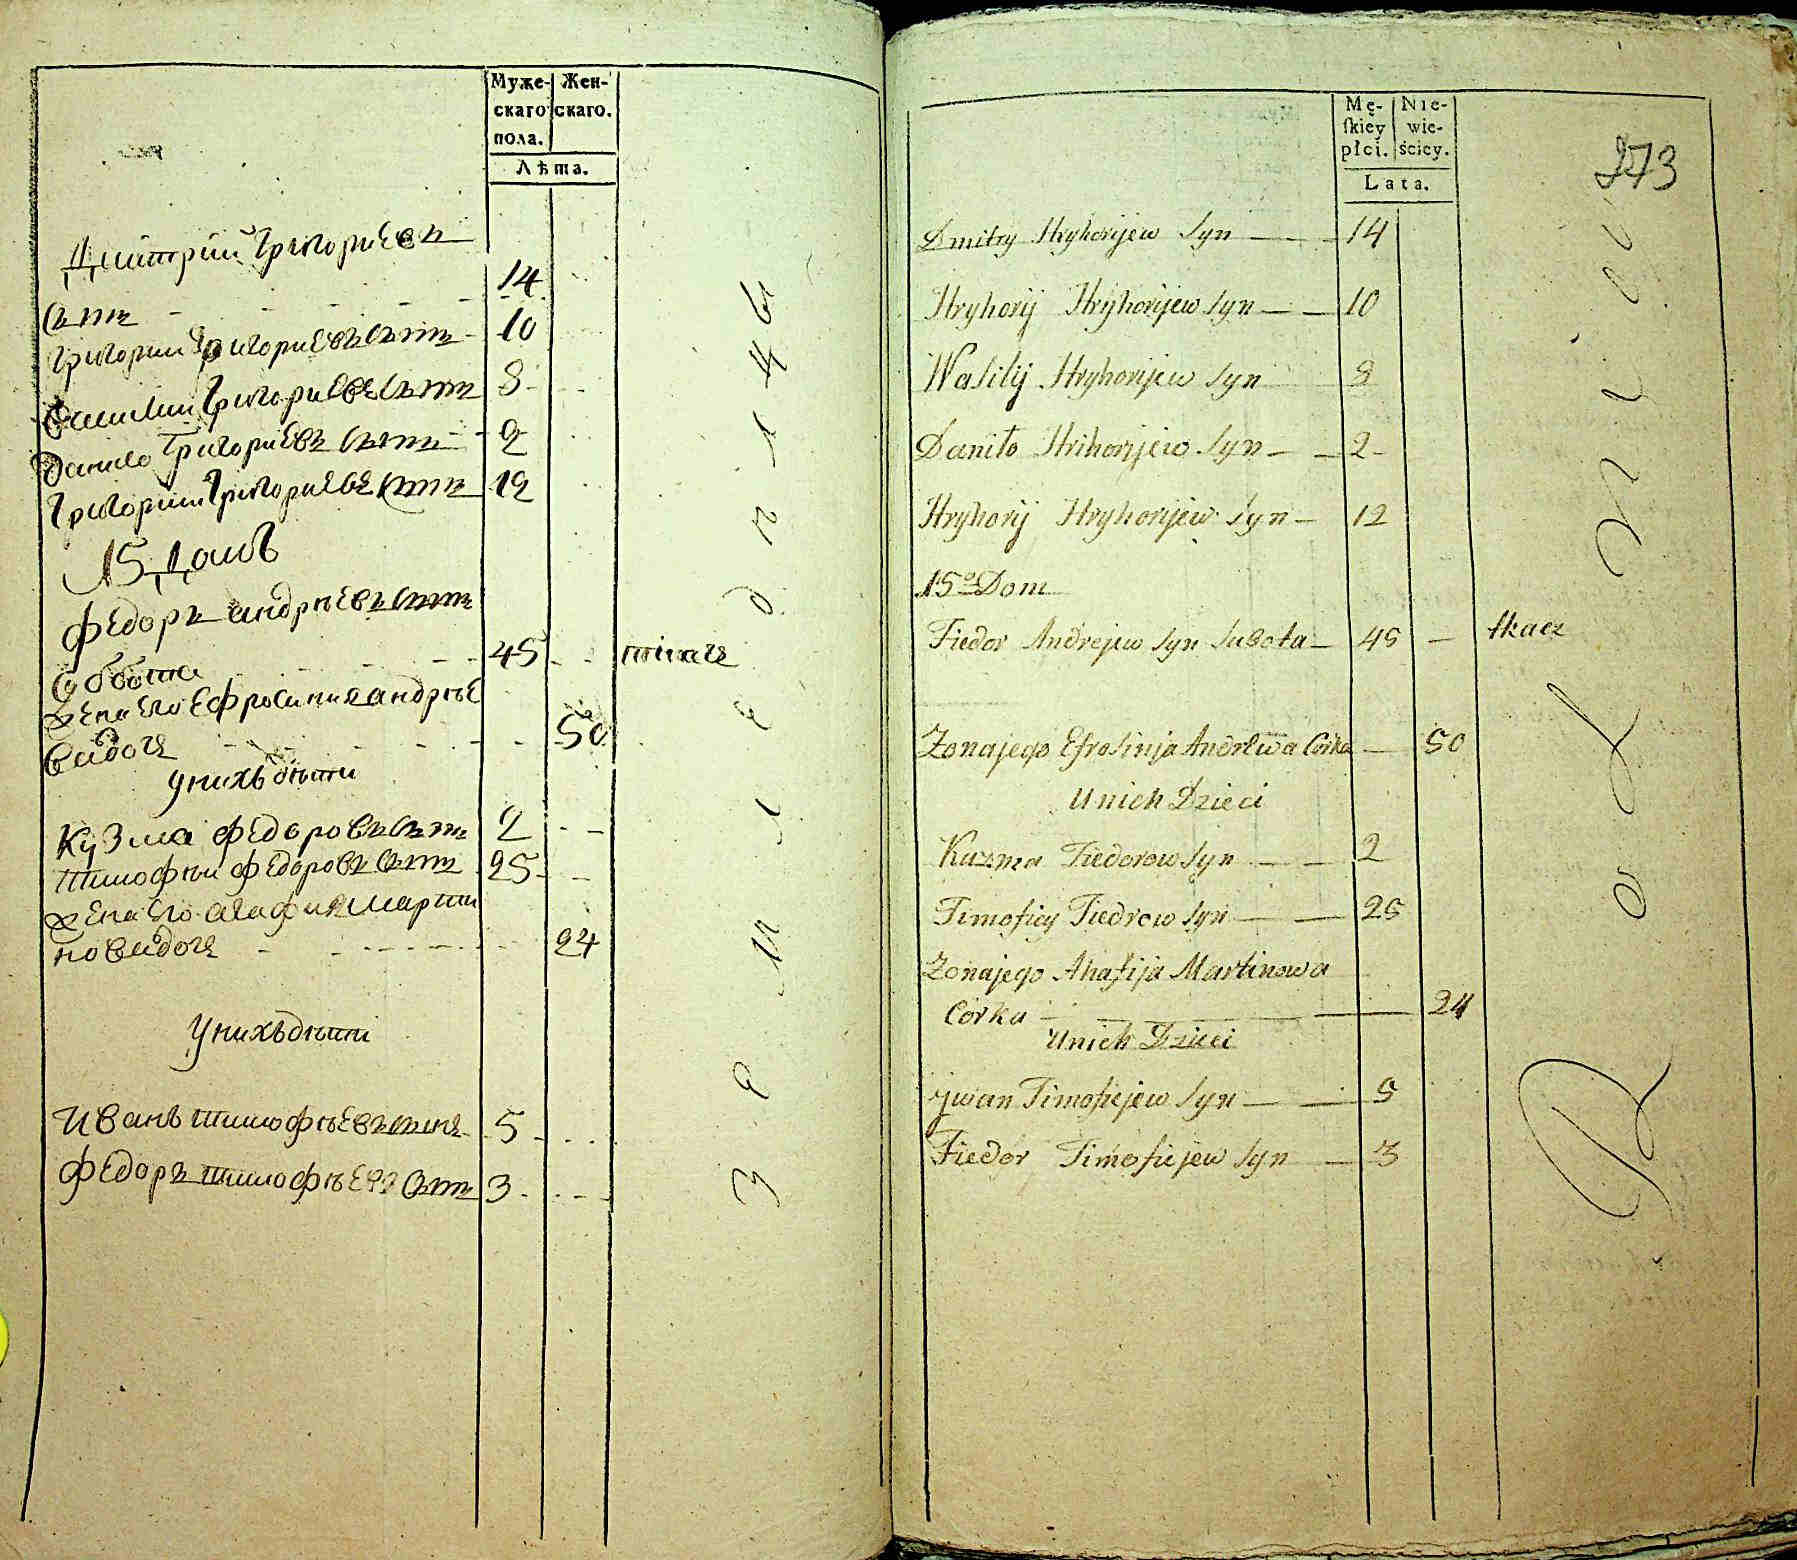 Муже-
скаго
пола.
Жен-
скаго.
Лѣта.
Дмитрий Григориевъ
сынъ 14
Григорий Григориевъ сынъ 10
Василий Григориевъ сынъ 8
Данило Григориевъ сынъ 2
Григорий Григориевъ сынъ 12
15 Домъ
Федоръ Андрѣевъ сынъ
Субота 45 ткачъ
Жена Его Ефросиния Андрѣе
ва дочь 50
У нихъ дѣти
Кузма Федоровъ сынъ 2
Тимофѣй Федоровъ сынъ 25
Жена Его Агафия Марти
нова дочь 24
У нихъ дѣти
Иванъ Тимофѣевъ сынъ 5
Федоръ Тимофѣевъ сынъ 3
Земледѣлецъ
Mę-
skiey
płci.
Nie-
wie-
ściey.
Lata.
273
Dmitry Hryhorijew Syn 14
Hryhorij Hryhorijew Syn 10
Wasilij Hryhorijew Syn 8
Daniło Hrihorijew Syn 2
Hryhorij Hryhorijew Syn 12
15º Dom
Fiedor Andrejew Syn Subota 45 tkacz
Zonajego Efrosinja Andrewa Corka 50
Unich Dzieci
Kuzma Fiedorow Syn 2
Timofiey Fiedrow Syn 25
Zonajego Ahafija Martinowa
Corka 24
Unich Dzieci
Jwan Timofiejew Syn 5
Fiedor Timofiejew Syn 3
Rolnicy